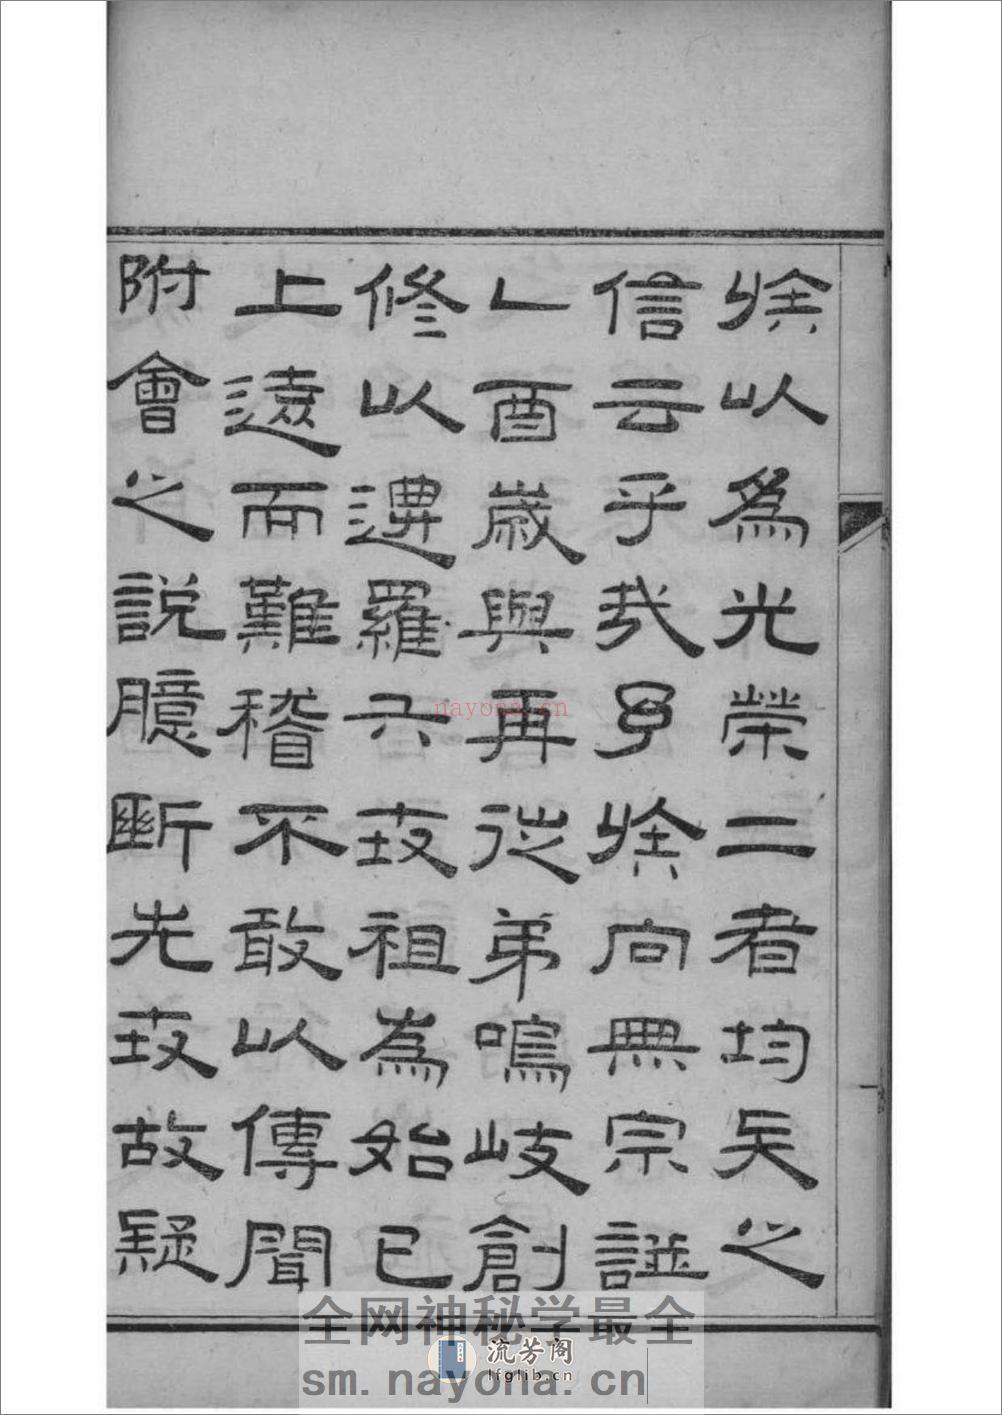 族以為光榮二者均失之
信云乎哉予族向無宗譜
乙酉歲與再從弟鳴岐創
修以遷羅六世祖為始已
上遠而難稽不敢以傳聞
附會之說臆斷先世故疑
nayona.cn
全网神秘学最全
流芳阁
lfglib.cn
sm.nayona.cn